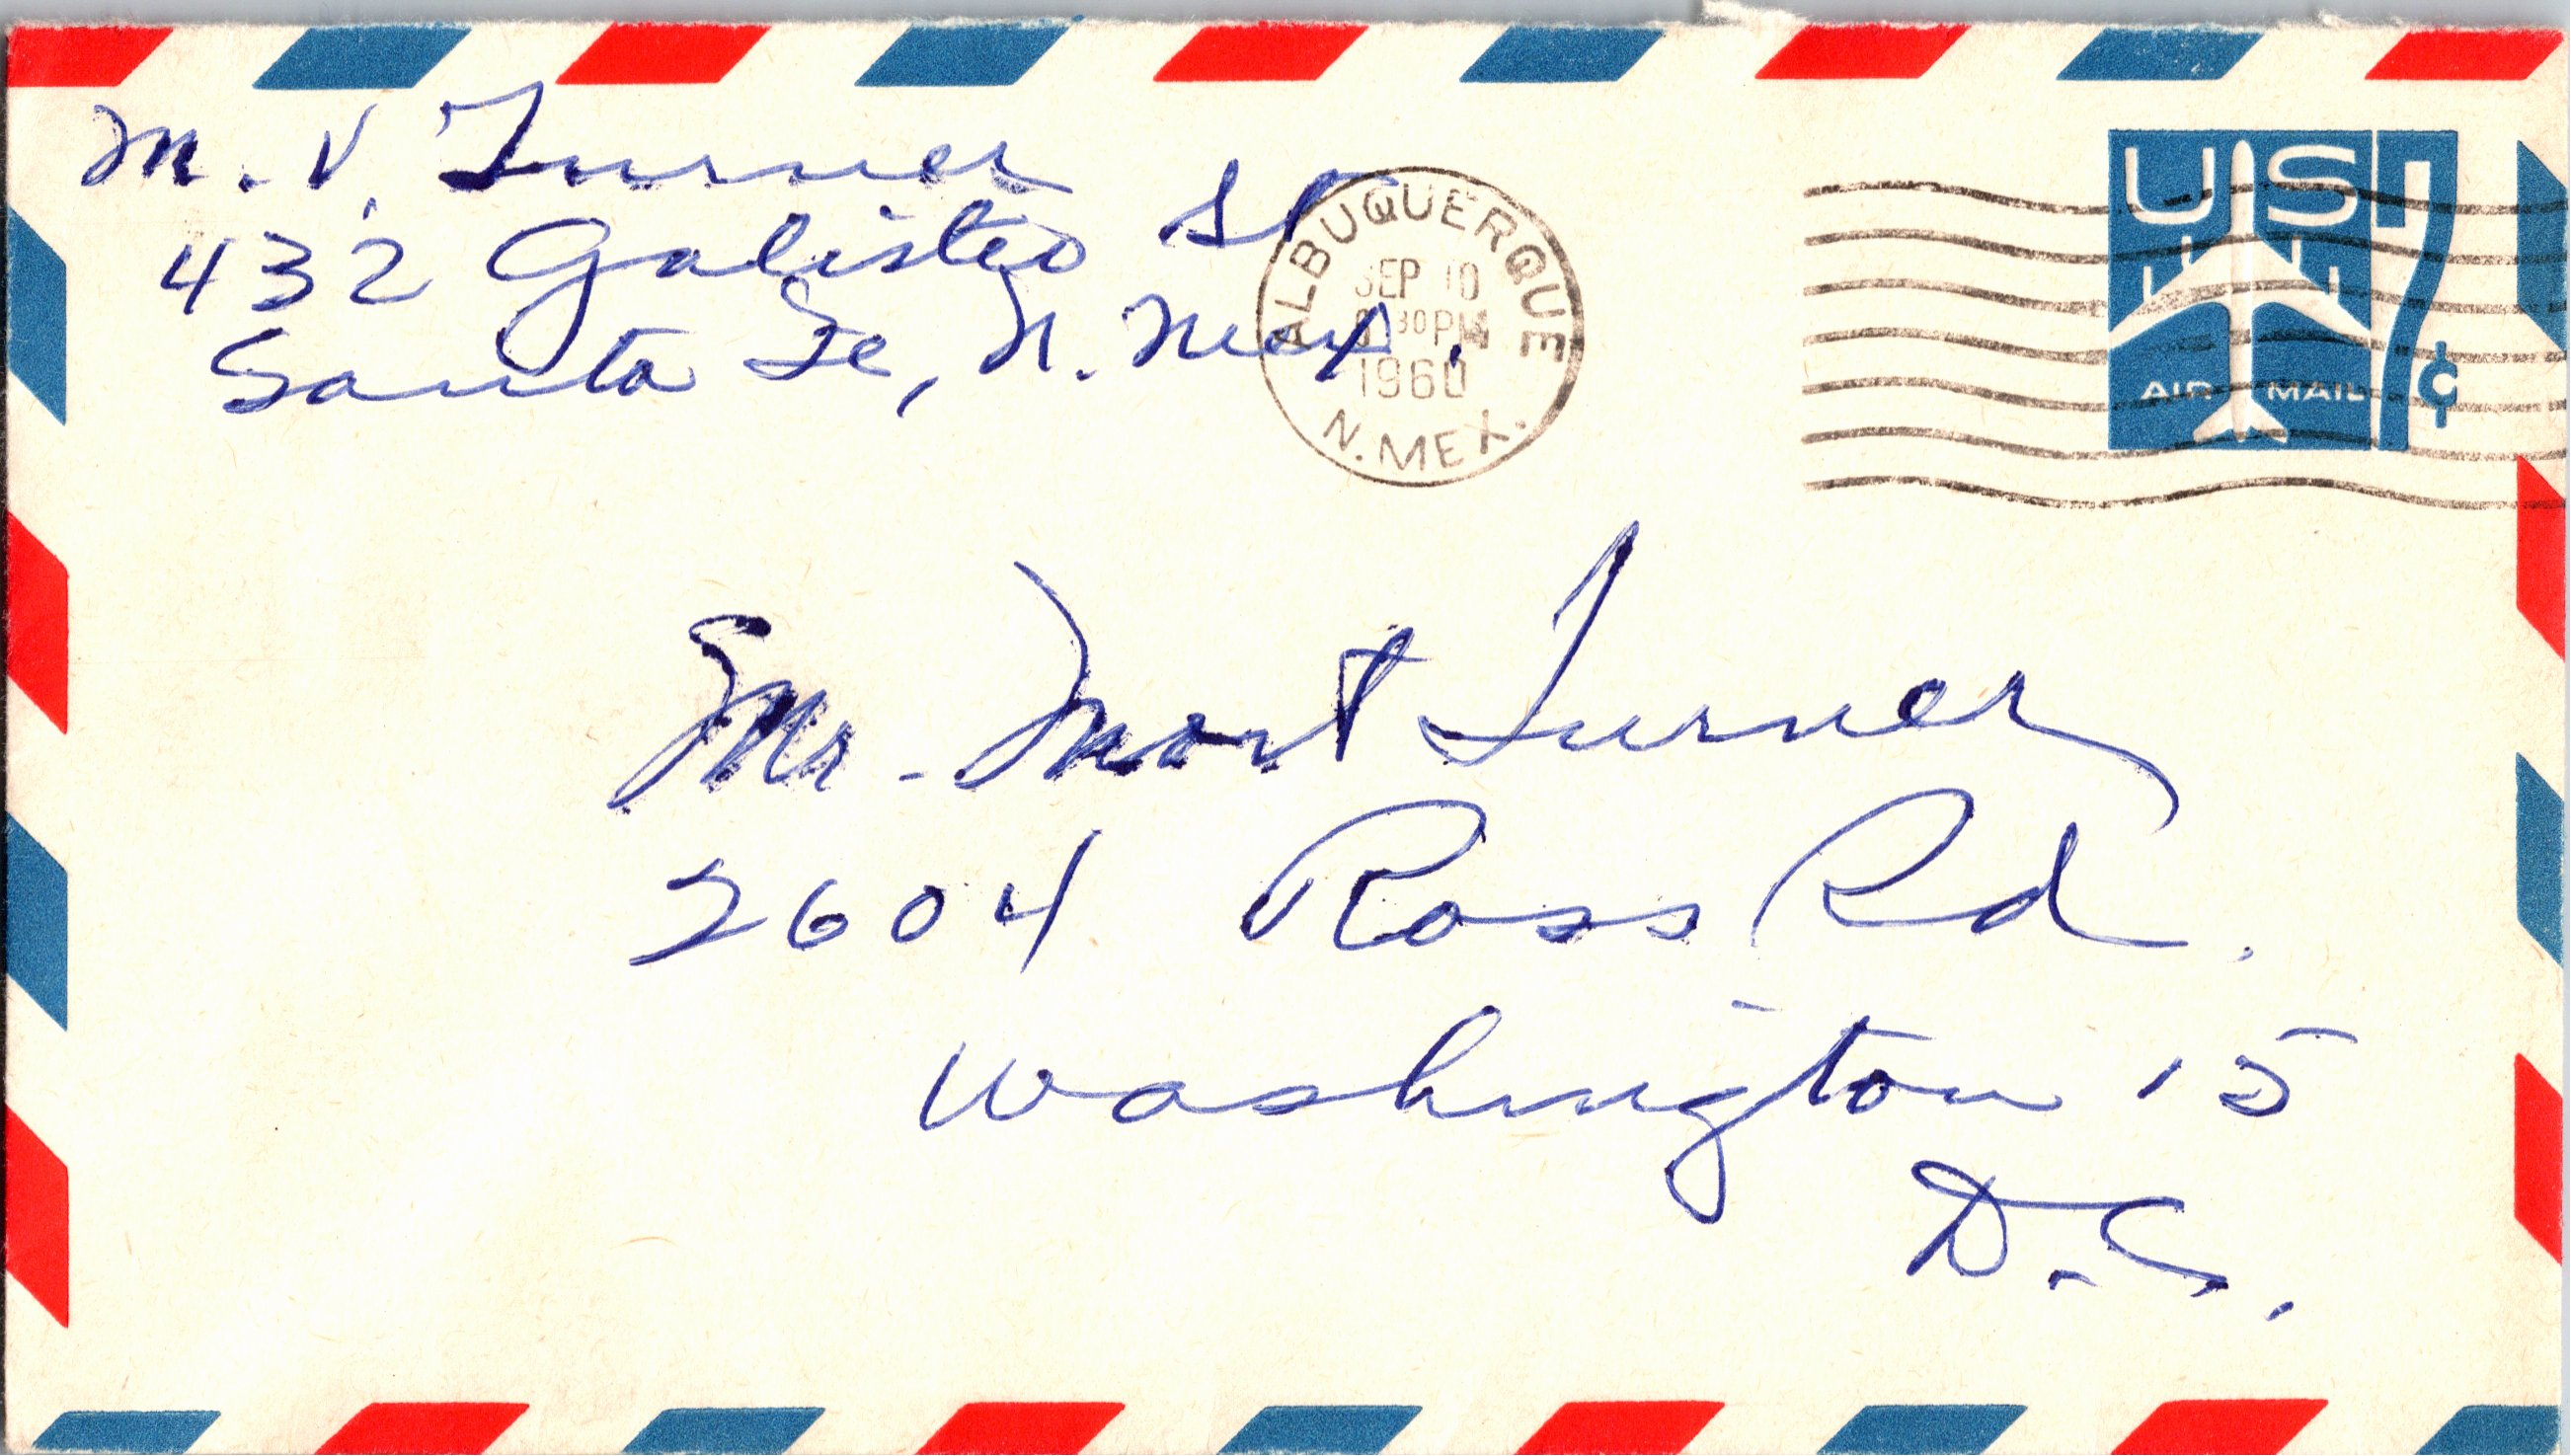 M. V. Turner
432 Galisteo St
Santa Fe, N. Mex.
ALBUQUERQUE
SEP 10
30 PM
1960
N. MEX.
US 7¢
AIR MAIL
Mr. Mort Turner
2604 Ross Rd.
Washington 15
D.C.